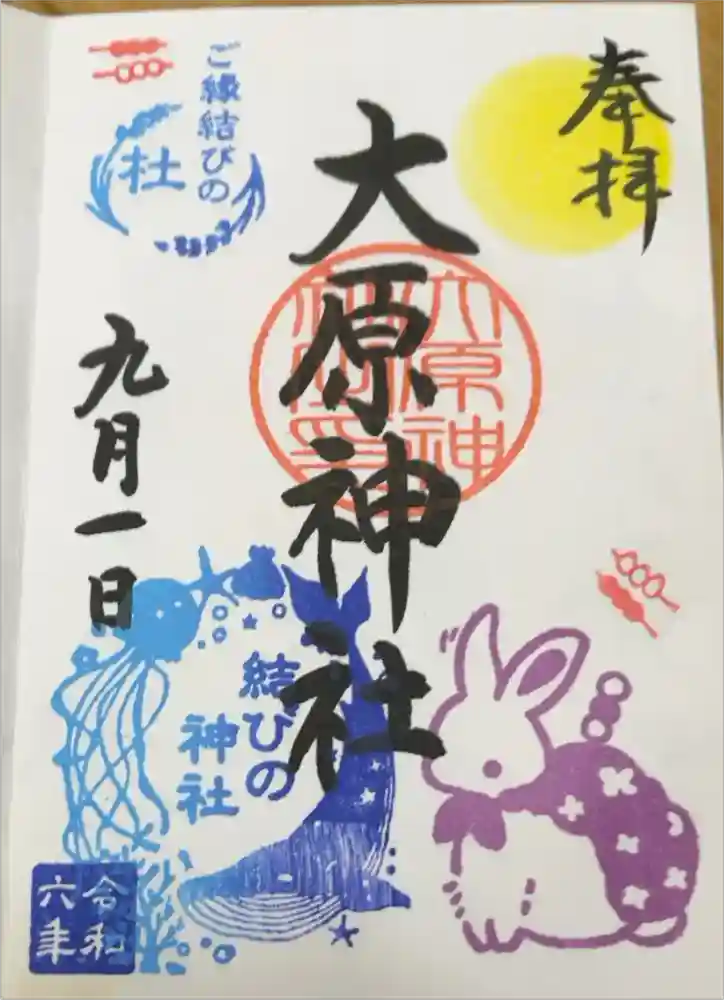 奉拝
大原神社
大原神社印
ご縁結びの
杜
九月一日
結びの
神社
令和
六年